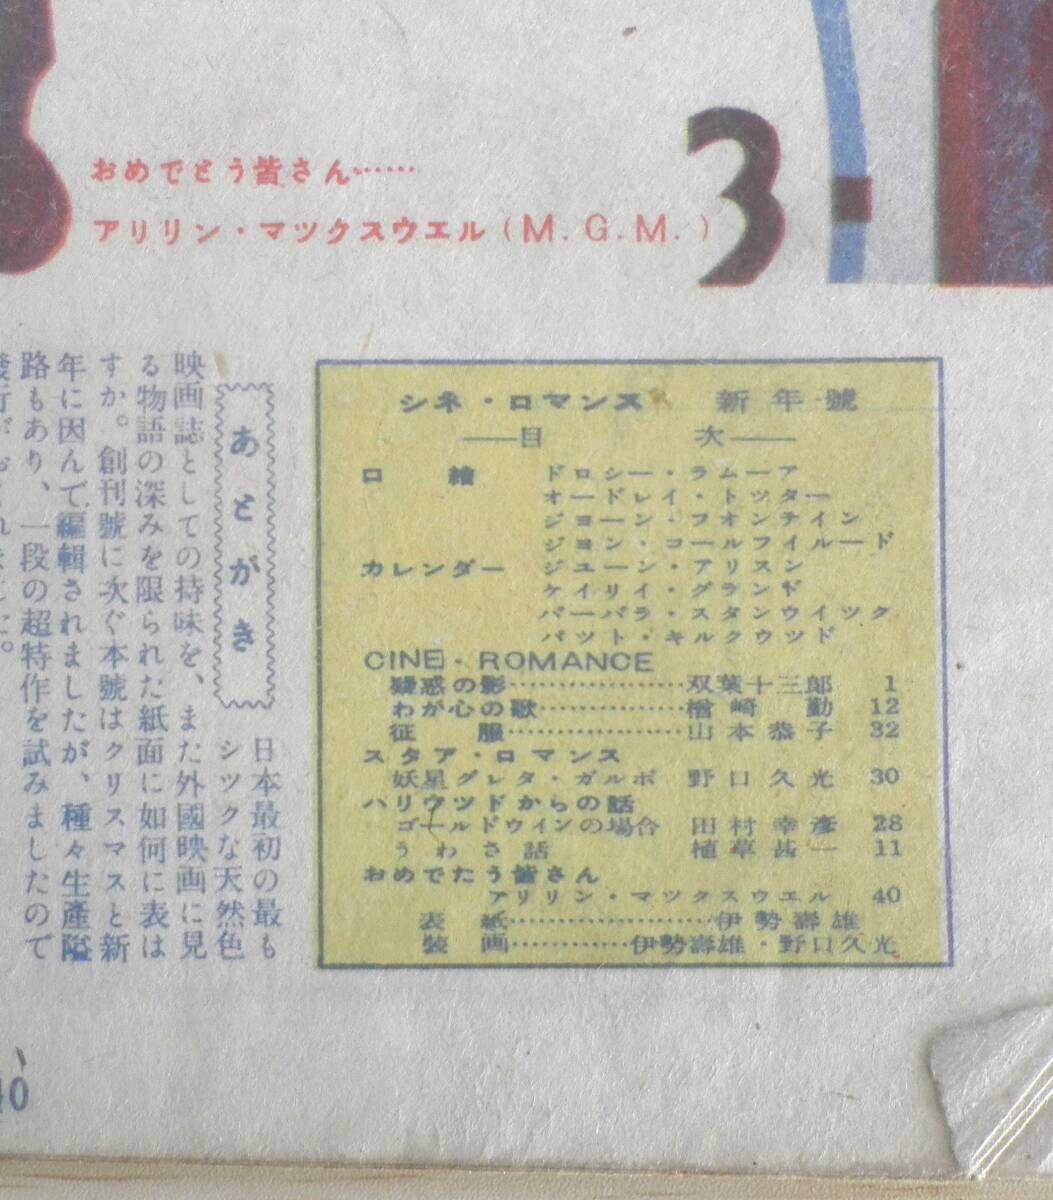 おめでとう皆さん……
アリリン・マックスウエル（M.G.M.）
3
あとがき
日本最初の最も
シックな天然色
映画誌としての持味を、また外國映画に見
る物語の深みを限られた紙面に如何に表は
すか。創刊號に次ぐ本號はクリスマスと新
年に因んで編輯されましたが、種々生產隘
路もあり、一段の超特作を試みましたので
40
シネ・ロマンス 新年號
——目 次——
口 繪 ドロシー・ラムーア
オードレイ・トッター
ジョーン・フオンテイン
ジョン・コールフイルード
カレンダー ジューン・アリスン
ケイリイ・グランド
バーバラ・スタンウイック
パット・キルクウッド
CINE・ROMANCE
疑惑の影………………双葉十三郎 1
わが心の歌……………楢崎 勤 12
征 服………………山本恭子 32
スタア・ロマンス
妖星グレタ・ガルボ 野口久光 30
ハリウッドからの話
ゴールドウインの場合 田村幸彥 28
うわさ話 植草甚一 11
おめでたう皆さん
アリリン・マックスウエル 40
表 紙…………………伊勢壽雄
裝 画…………伊勢壽雄・野口久光